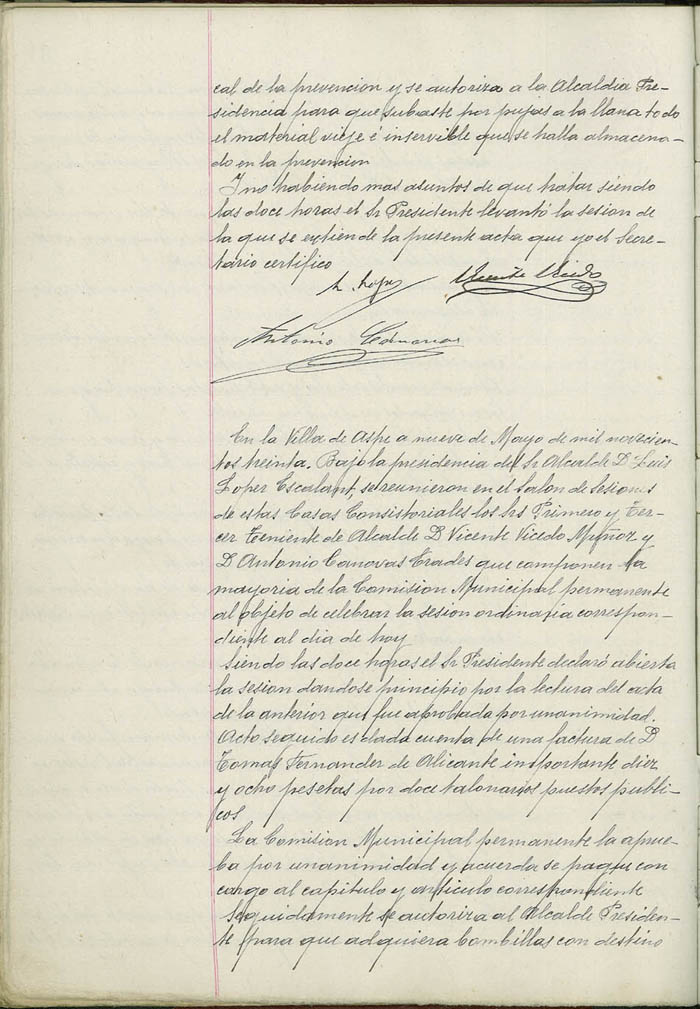 cal de la prevencion y se autoriza a la Alcaldia Pre-
sidencia para que subaste por pujas a la llana todo
el material viejo é inservible que se halla almacena-
do en la prevencion
Y no habiendo mas asuntos de que tratar siendo
las doce horas el Sr Presidente levantó la sesion de
la que se extiende la presente acta que yo el Secre-
tario certifico
L. Lopez Vicente Vicedo
Antonio Cánovas
En la Villa de Aspe a nueve de Mayo de mil novecien-
tos treinta, Bajo la presidencia del Sr Alcalde D Luis
Lopez Escalant, se reunieron en el Salon de Sesiones
de estas Casas Consistoriales los Srs Primero y Ter-
cer Teniente de Alcalde D Vicente Vicedo Muñoz y
D Antonio Canovas Erades que componen la
mayoria de la Comision Municipal permanente
al objeto de celebrar la sesion ordinaria correspon-
diente al dia de hoy
Siendo las doce horas el Sr Presidente declaró abierta
la sesion dandose principio por la lectura del acta
de la anterior que fue aprobada por unanimidad.
Acto seguido es dada cuenta de una factura de D
Tomas Fernandez de Alicante importante diez
y ocho pesetas por doce talonarios puestos publi-
cos
La Comision Municipal permanente la aprue-
ba por unanimidad y acuerda se pague con
cargo al capitulo y articulo correspondiente
Seguidamente se autoriza al Alcalde Presiden-
te para que adquiera bombillas con destino